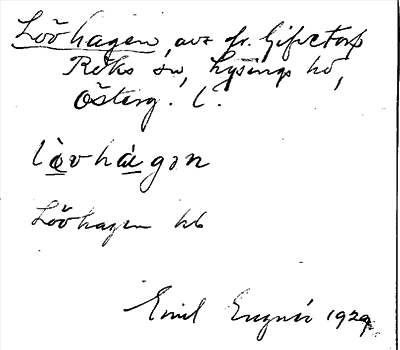 Lövhagen, avs fr. Gisetorp
Röks sn, Lysings hd,
Österg. l.
lòvhá̱gən
Lövhagen hb
Emil 1929